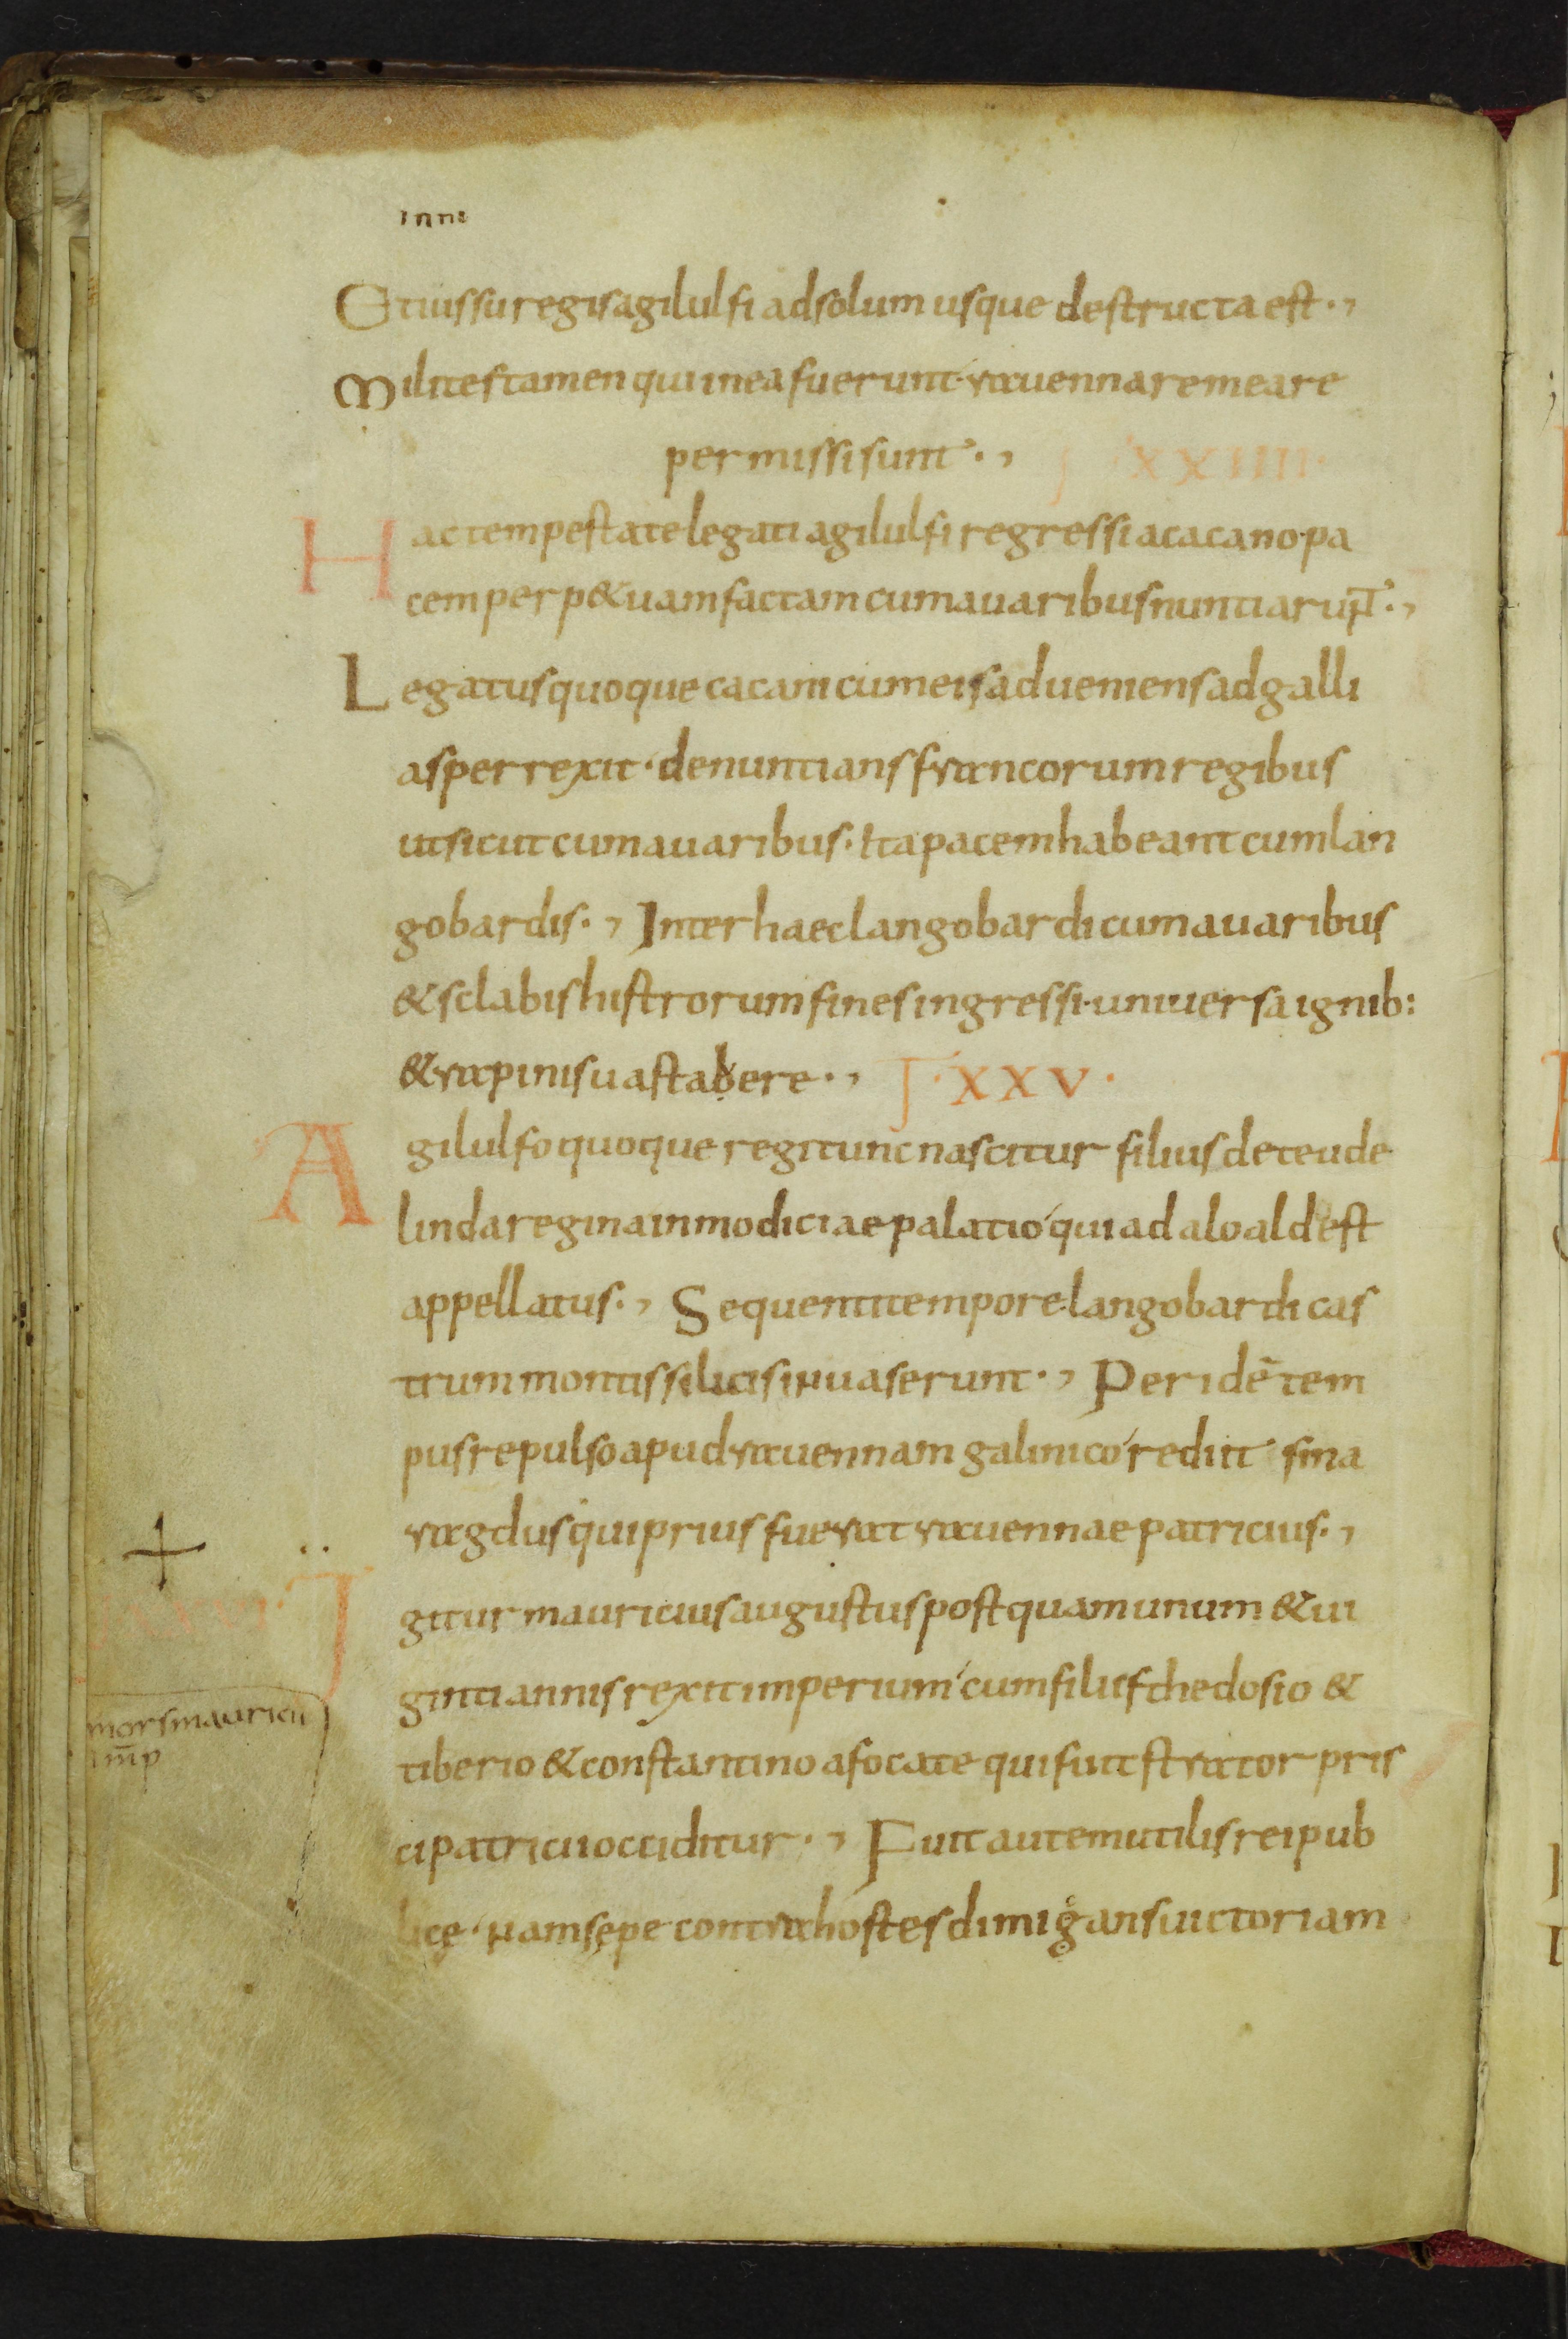 inni
Et iussu regis agilulfi ad solum usque destructa est·,
Milites tamen qui in ea fuerunt· rauenna remeare
permissi sunt·, ·XXIIII·
Hac tempestate legati agilulfi regressi a cacano· pa
cem perp&uam factam cum auaribus nuntiarunt̄·,
Legatus quoque cacani cum eis adueniens ad galli
as perrexit· denuntians francorum regibus
ut sicut cum auaribus· ita pacem habeant cum lan
gobardis·, Inter haec langobardi cum auaribus
& sclabis histrorum fines ingressi· uniuersa ignib:
& rapinis uastabere·, ·XXV·
Agilulfo quoque regi tunc nascitur filius de teude
linda regina in modiciae palatio qui adaloald est
appellatus·, Sequenti tempore· langobardi cas
trum montis silicis inuaserunt·, Per idē tem
pus repulso apud rauennam galinico rediit sma
ragdus qui prius fuerat rauennae patricius·,
Igitur mauricius augustus postquam unum & ui
ginti annis rexit imperium cum filiis thedosio &
tiberio & constantino a focate qui fuit strator pris
ci patricii occiditur·, Fuit autem utilis rei pub
lice· nam sępe contra hostes dimigans uictoriam
mors mauricii
im̄p